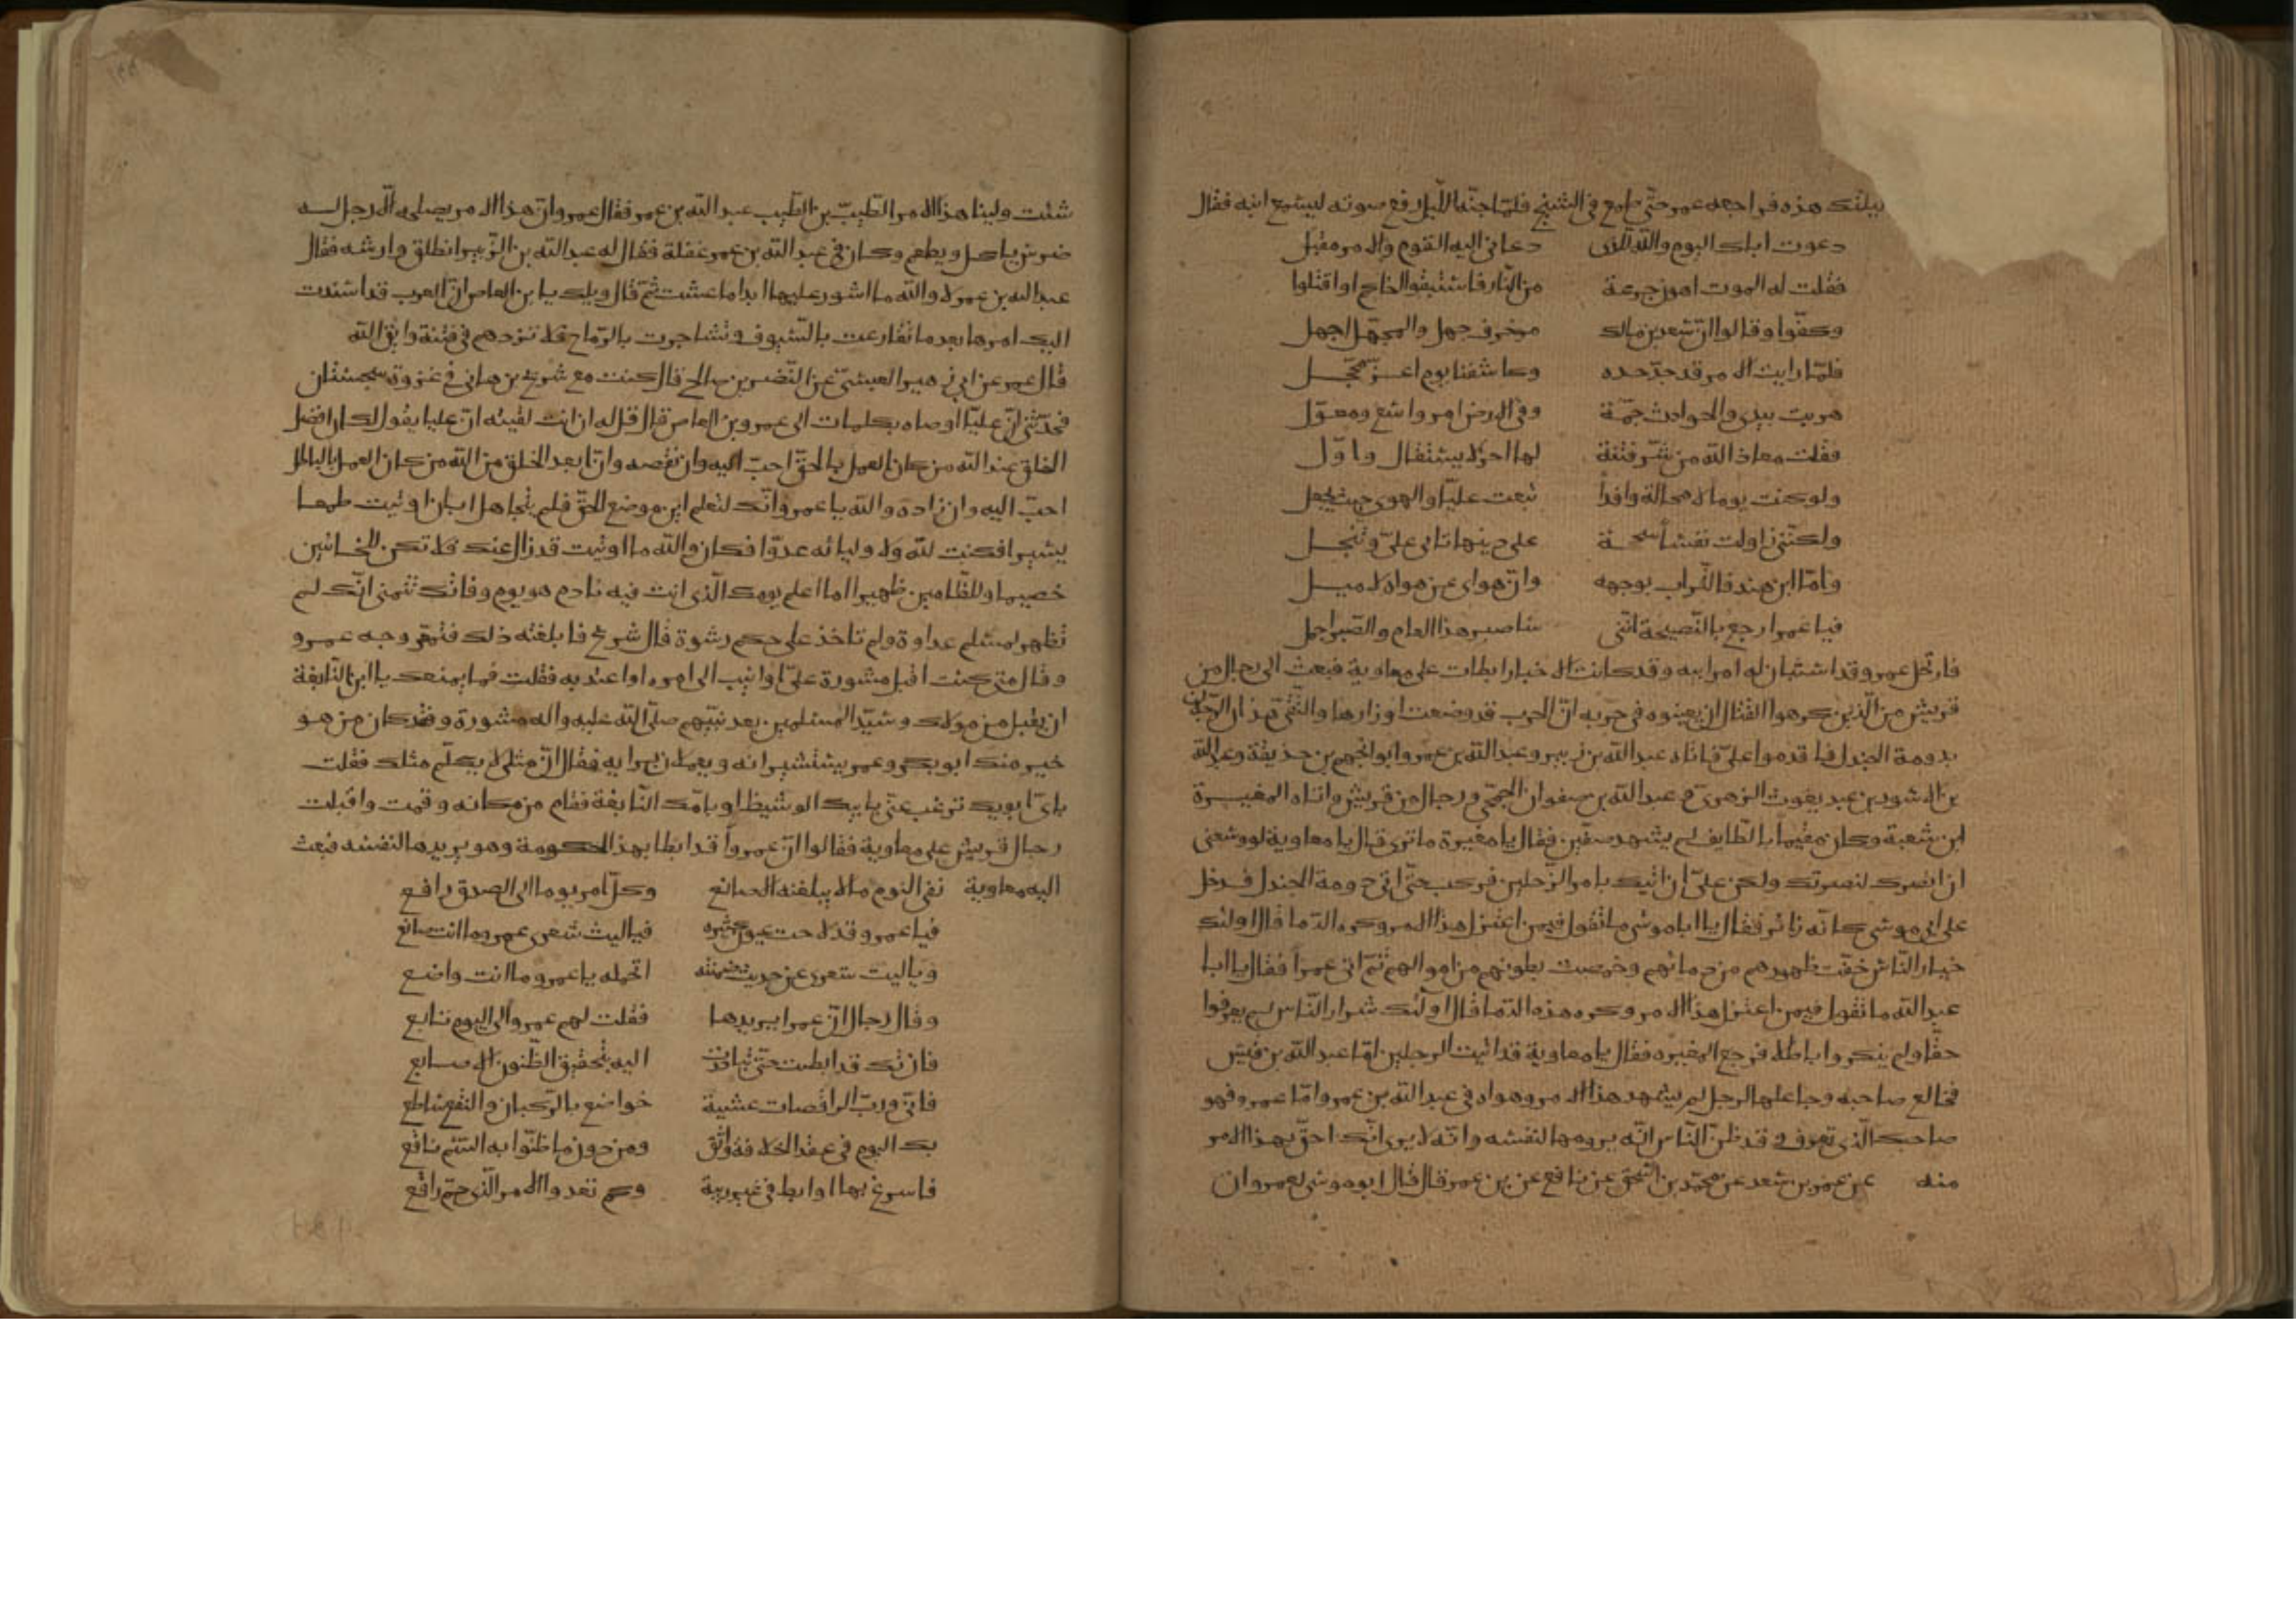 ليلتك هذه فراجعه عمر حتى طمع في الشيخ فلما جنه الليل رفع صوته ليسمع ابنه فقال
دعوت اباك اليوم والله للذى دعانى اليه القوم والامر مقبل
فقلت له الموت اهون جرعة من النار فاستبقوا اخاكم او اقتلوا
وكفوا وقالوا ان سعد بن مالك مزخرف جهل والمجهل اجهل
فلما رايت الامر قد جد جده وكاشفنا يوم اغر محجل
هربت بدينى والحوادث جمة وفى الارض امر واسع ومعول
فقلت معاذ الله من شر فتنة لها اخر لا يستقال واول
ولو كنت يوما لا محالة وافدا تبعت عليا والهوى حيث يجعل
ولكننى زاولت نفسا شحيحة على دينها تابى على وتبخل
واما ابن هند فالتراب بوجهه وان هواى عن هواه لاميل
فيا عمر ارجع بالنصيحة اننى ساصبر هذا العام والصبر اجمل
فارتحل عمر وقد استبان له امر ابيه وقد كانت الاخبار ابطات على معاوية فبعث الى رجال من
قريش من الذين كرهوا القتال ان يعينوه فى حربه ان الحرب قد وضعت اوزارها والتقى هذان الرجلان
بدومة الجندل فاقدموا على فاتاه عبد الله بن زبير وعبد الله بن عمر وابو الجهم بن حذيفة وعبد الله
بن الاسود بن عبد يغوث الزهرى وعبد الله بن صفوان الجمحى ورجال من قريش واتاه المغيرة
ابن شعبة وكان مقيما بالطايف لم يشهد صفين فقال يا مغيرة ما ترى قال يا معاوية لو وسعنى
ان انصرك لنصرتك ولكن على ان اتيك بامر الرجلين فركب حتى اتى دومة الجندل فدخل
على ابى موسى كانه زائر فقال يا ابا موسى ما تقول فيمن اعتزل هذا الامر وكره الدما قال اولئك
خيار الناس خفت ظهورهم من دمائهم وخمصت بطونهم من اموالهم ثم اتى عمرا فقال يا ابا
عبد الله ما تقول فيمن اعتزل هذا الامر وكره هذه الدما قال اولئك شرار الناس لم يعرفوا
حقا ولم ينكروا باطلا فرجع المغيره فقال يا معاوية قد اتيت الرجلين اما عبد الله بن قيس
فخالع صاحبه وجاعلها لرجل لم يشهد هذا الامر وهواه فى عبد الله بن عمر واما عمرو فهو
صاحبك الذى تعرف وقد ظن الناس انه يرومها لنفسه وانه لا يرى انك احق بهذا الامر
منه عن عمر بن سعد عن محمد بن اسحق عن نافع عن بن عمر قال قال ابو موسى لعمرو ان
شئت ولينا هذا الامر الطيب بن الطيب عبد الله بن عمر فقال عمرو ان هذا الامر يصلح له الا رجل له
ضرس ياكل ويطعم وكان فى عبد الله بن عمر غفلة فقال له عبد الله بن الزبير انطلق وارشه فقال
عبد الله بن عمر لا والله ما اشور عليها ابدا ما عشت ثم قال ويلك يا بن العاص ان العرب قد اسندت
اليك امرها بعد ما تقارعت بالسيوف وتشاجرت بالرماح فلا تردهم فى فتنة واتق الله
قال عمر عن ابى زهير العبسى عن النضر بن صالح قال كنت مع شريح بن هانى فى غزوة سجستان
فحدثنى ان عليا اوصاه بكلمات الى عمرو بن العاص قال قل له ان انت لقيته ان عليا يقول لك ان افضل
الخلق عند الله من كان العمل بالحق احب اليه وان نقصه وان ابعد الخلق من الله من كان العمل بالباطل
احب اليه وان زاده والله يا عمرو انك لتعلم اين موضع الحق فلم تتجاهل ابان اوتيت طمعا
يسيرا فكنت لله ولاوليائه عدوا فكان والله ما اوتيت قد زال عنك فلا تكن للخائنين
خصيما وللظالمين ظهيرا اما انى اعلم يومك الذى انت فيه نادم هو يوم وفاتك تتمنى انك لم
تظهر لمسلم عداوة ولم تاخذ على حكم رشوة قال شريح فابلغته ذلك فتمعر وجه عمرو
وقال متى كنت اقبل مشورة على او انيب الى امره او اعتد به فقلت فما يمنعك يا ابن النابغة
ان يقبل من مولاك وسيد المسلمين بعد نبيهم صلى الله عليه واله مشورة وقد كان من هو
خير منك ابو بكر وعمر يستشيرانه ويعملان برايه فقال ان مثلى لا يكلم مثلك فقلت
باى ابويك ترغب عنى بابيك الوشيظ او بامك النابغة فقام من مكانه وقمت واقبلت
رجال قريش على معاوية فقالوا ان عمروا قد ابطا بهذا الحكومة وهو يريدها لنفسه فبعث
اليه معاوية نفى النوم ما لا يبلغنه الصانع وكل امر يوما الى الصدق راجع
فيا عمرو قد لاحت عيون كثيره فيا ليت شعرى عمرو ما انت صانع
ويا ليت شعرى عن حديث ضمنته اتحمله يا عمرو ما انت واضع
وقال رجال ان عمرا يريدها فقلت لهم عمرو الى اليوم تابع
فان تك قد ابطت حتى تبادرت اليه بتحقيق الظنون الاصابع
فانى ورب الراقصات عشية خواضع بالركبان والنقع ساطع
بك اليوم فى عقد الخلافة واثق ومن دون ما ظنوا به السم ناقع
فاسرع بها او ابط فى غير ريبة ولا تعد والامر الذى حم راقع